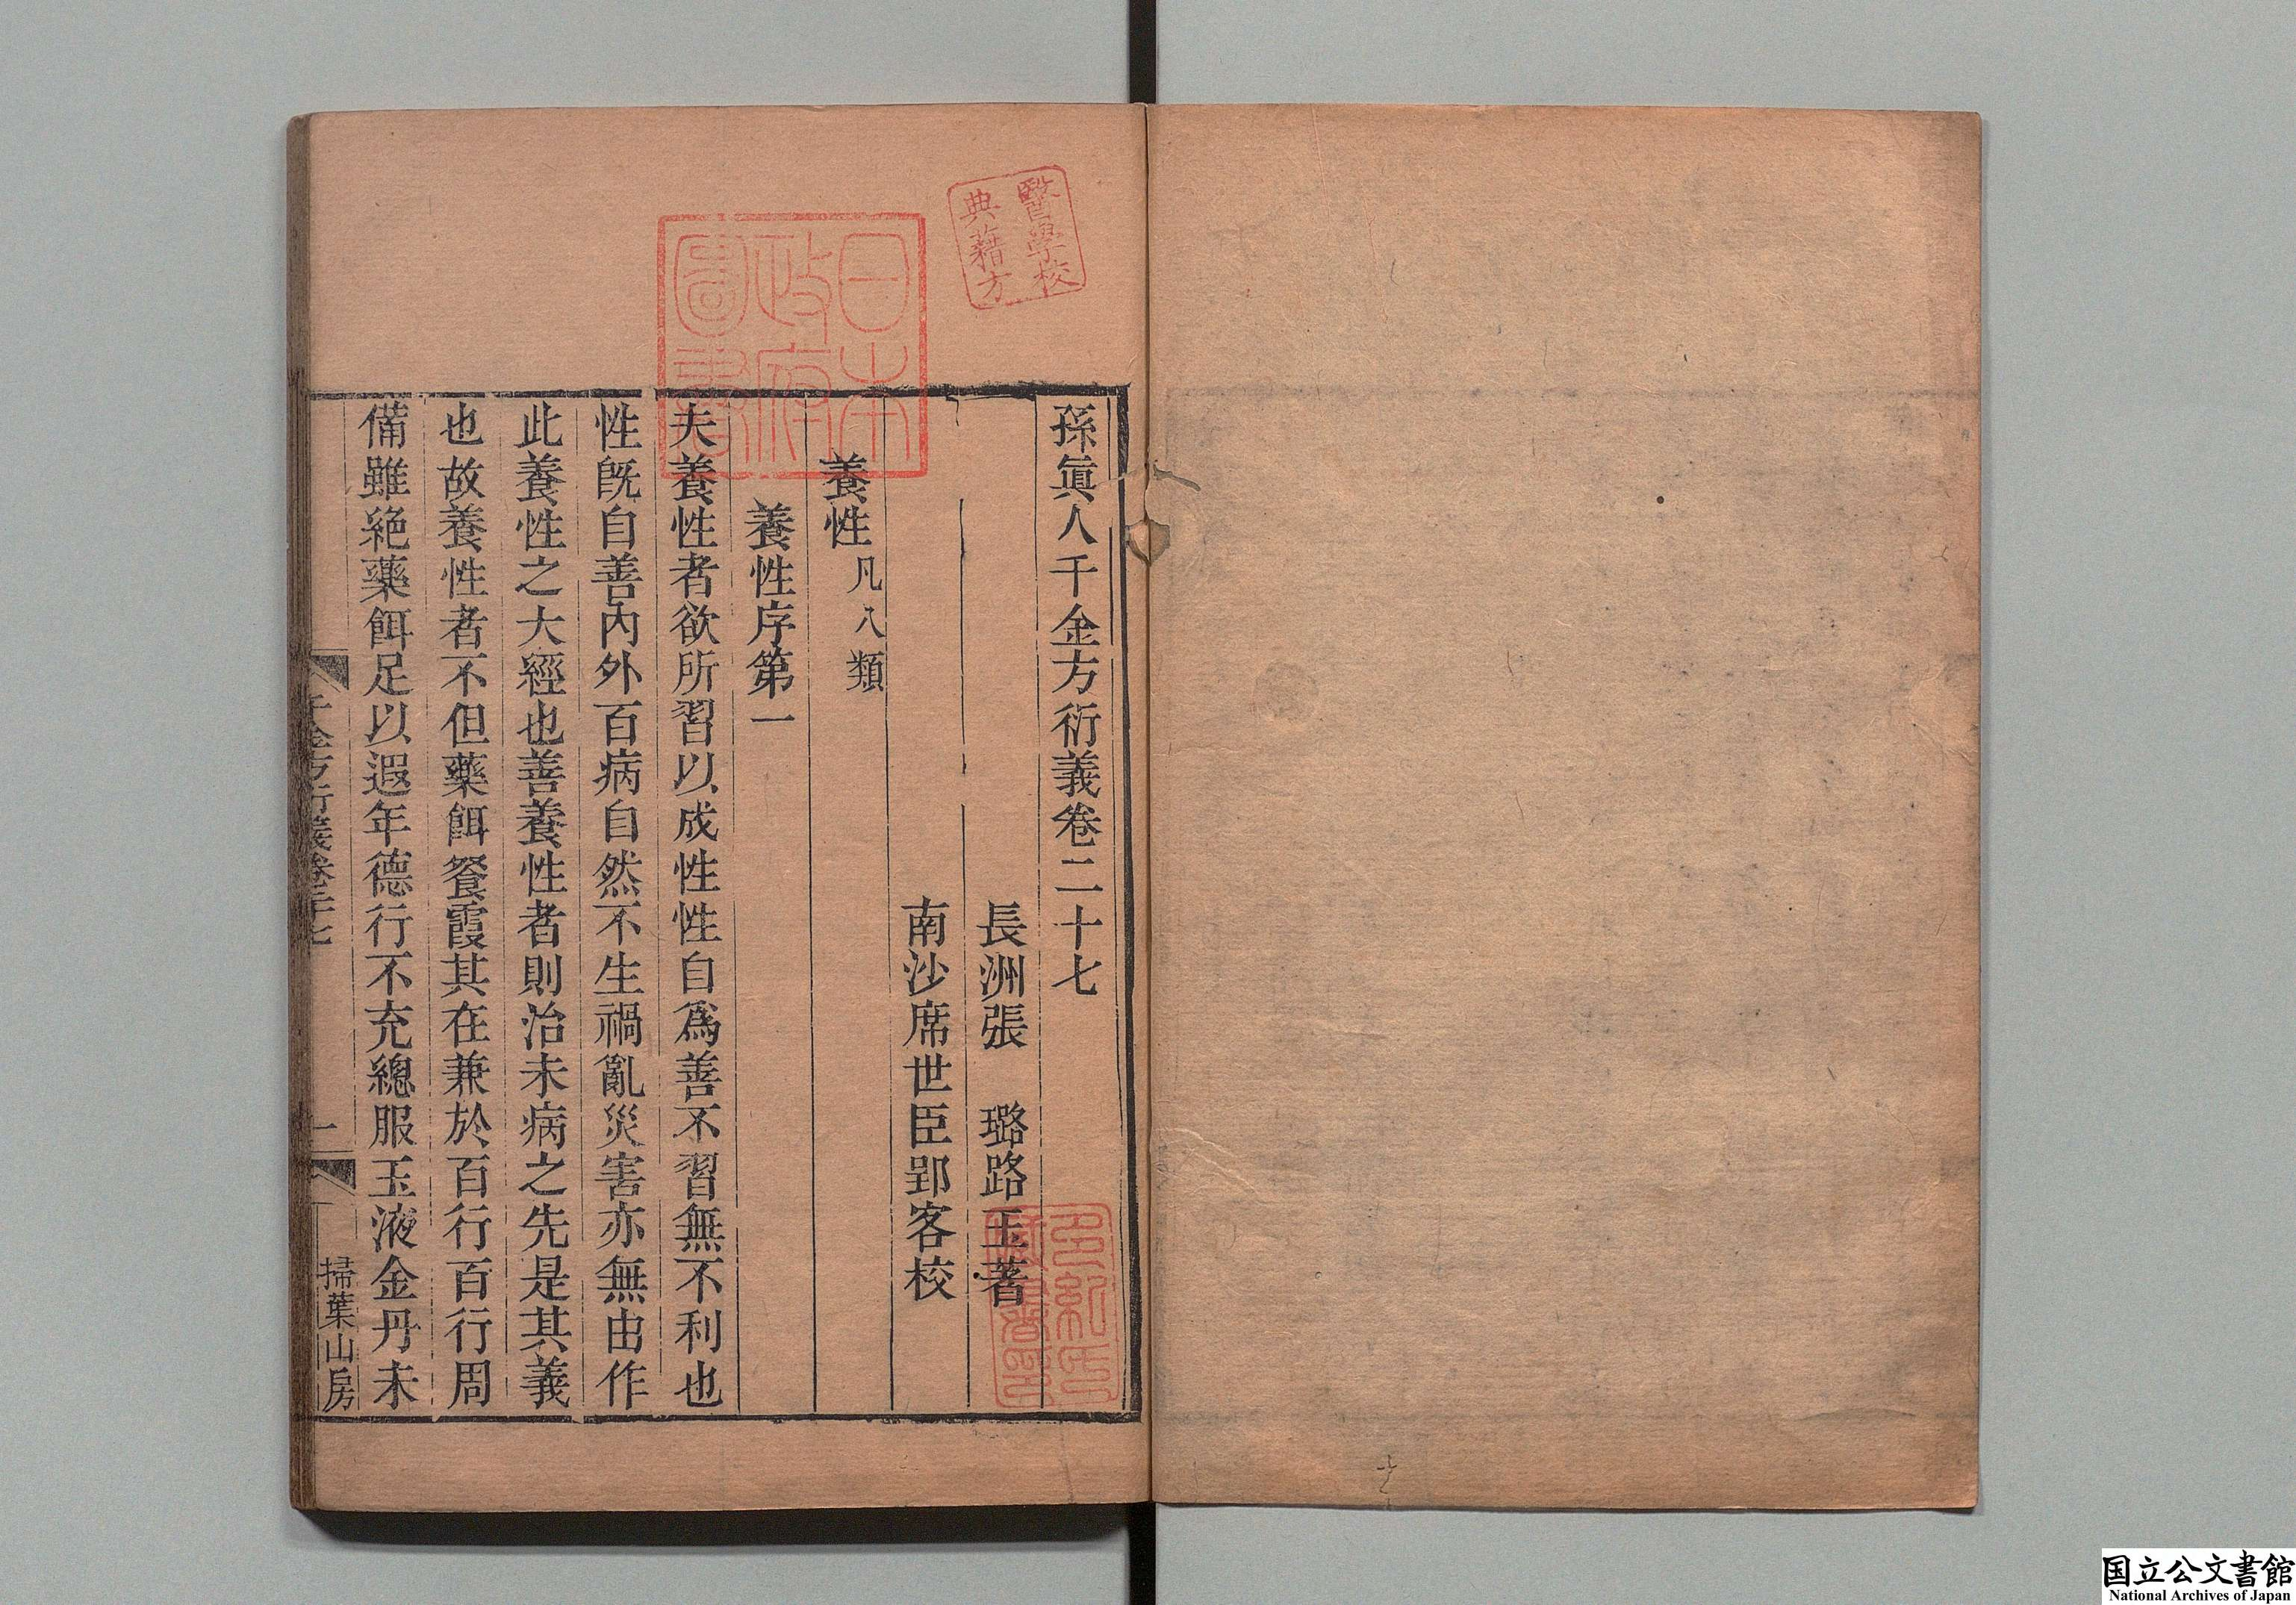 孫眞人千金方衍義卷二十七
長洲張　璐路玉著
南沙席世臣郢客校
養性凡八類
養性序第一
夫養性者欲所習以成性性自爲善不習無不利也
性旣自善內外百病自然不生禍亂災害亦無由作
此養性之大經也善養性者則治未病之先是其義
也故養性者不但藥餌餐霞其在兼於百行百行周
備雖絶藥餌足以遐年德行不充總服玉液金丹未
千金方衍義卷二十七
一
掃葉山房
醫學校
典藉方
日本
政府
圖書
国立公文書館
National Archives of Japan